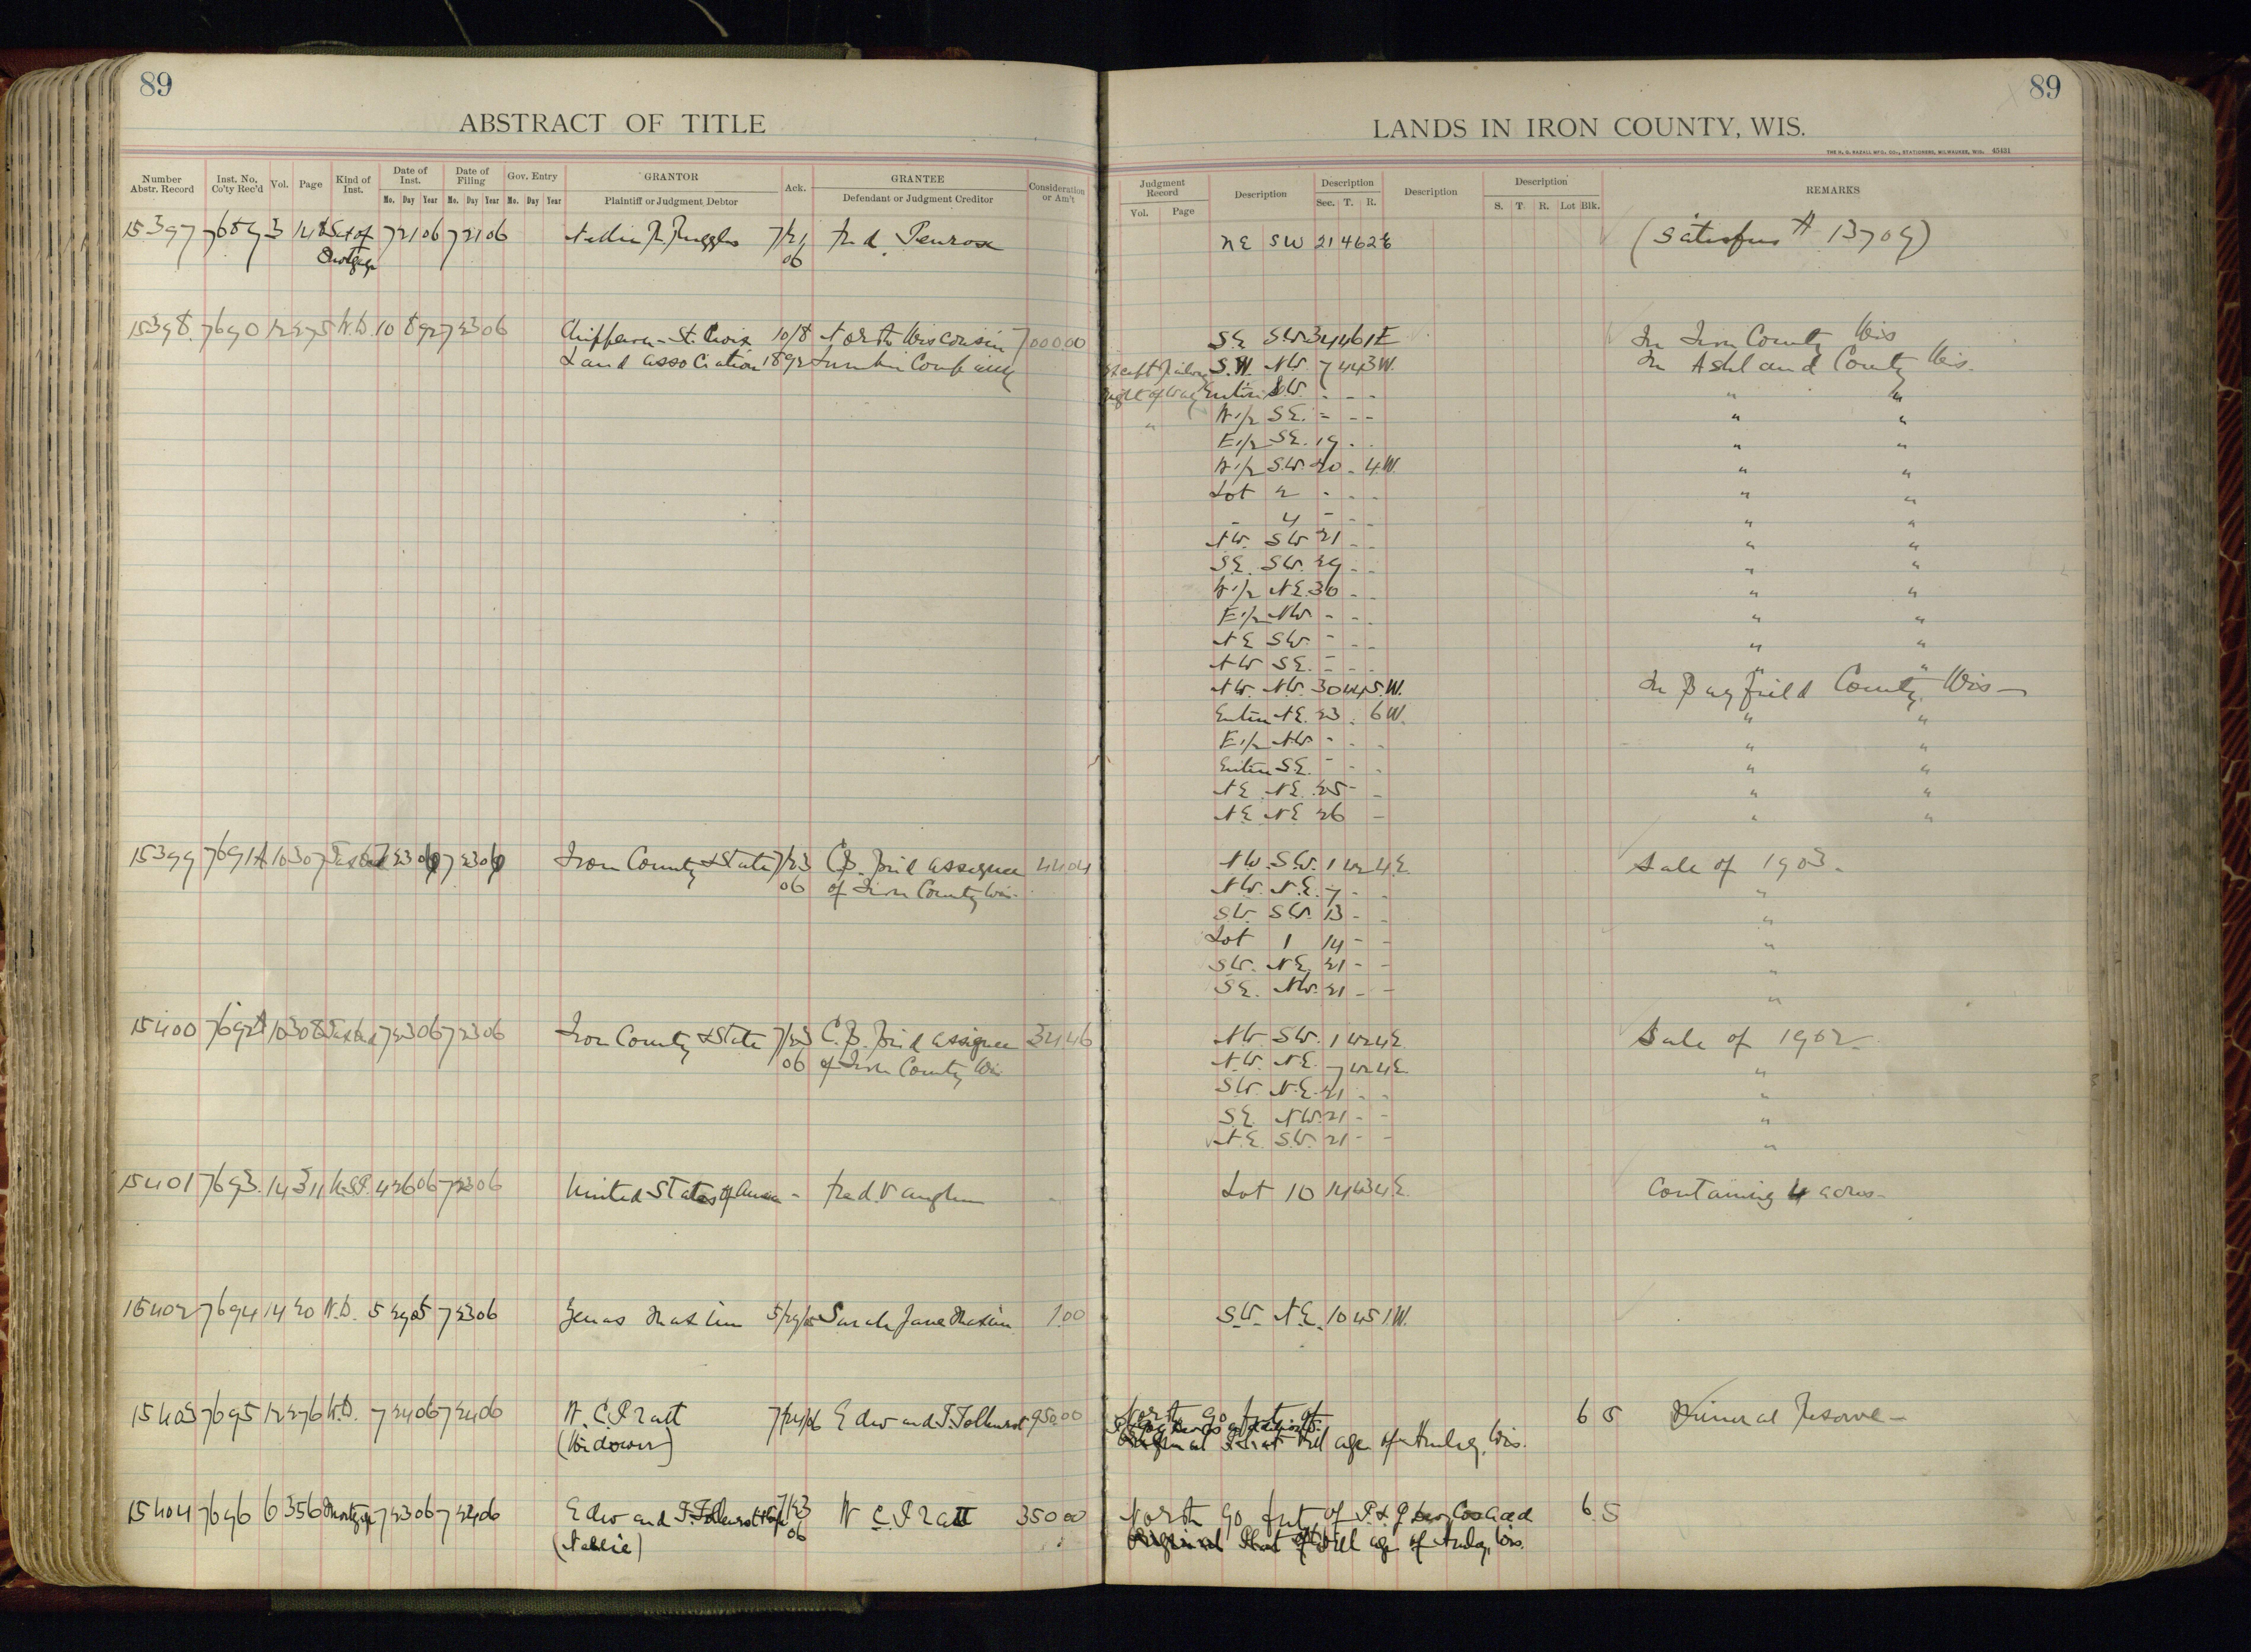 89
ABSTRACT OF TITLE
Number Abstr. Record Inst. No. Co'ty Rec'd Vol. Page Kind of Inst. Date of Inst. Date of Filing Gov. Entry GRANTOR Ack. GRANTEE Consideration or Am't
Mo. Day Year Mo. Day Year Mo. Day Year Plaintiff or Judgment Debtor Defendant or Judgment Creditor
15397 7689 3 148 Sat of 7 21 06 7 21 06 Nellie R. Ruggles 7/21 Fred Penrose
Mortgage 06
15398 7690 12 275 W.D. 10 8 92 7 23 06 Chippewa - St. Croix 10/8 North Wisconsin 7000.00
Land Association 1892 Lumber Company
15399 7691A 10 307 Tax Deed 7 23 06 7 23 06 Iron County & State 7/23 assignee 44 04
06 of Iron County Wis.
15400 7692A 10 308 Tax Deed 7 23 06 7 23 06 Iron County & State 7/23 assignee 32 46
06 of Iron County Wis
15401 7693 14 311 U.S.P. 4 26 06 7 23 06 United States of America - Fred Vaughn
15402 7694 14 20 W.D. 5 29 05 7 23 06 5/29/05 Sarah Jane 1.00
15403 7695 12 276 W.D. 7 24 06 7 24 06 W. C. Pratt 7/24/06 Edward T. 950.00
(Widower)
15404 7696 6 356 Mortgage 7 23 06 7 24 06 Edward T. 7/23 W. C. Pratt 350 00
(Nellie) 06
89
LANDS IN IRON COUNTY, WIS.
THE H. G. RAZALL MFG. CO., STATIONERS, MILWAUKEE, WIS. 45431
Judgment Record Description Description Description Description REMARKS
Vol. Page Sec. T. R. S. T. R. Lot Blk.
NE SW 21 46 2E (Satisfies # 13709)
SE SW 34 46 1E In Iron County Wis
S.W. NW. 7 44 3W. In Ashland County Wis.
right of way Entire S.W. - - - " "
" N 1/2 SE. - - - " "
E 1/2 SE. 19 - - " "
N 1/2 S.W. 20 - 4W. " "
Lot 2 - - - " "
- 4 - - - " "
NW. SW 21 - - " "
SE. SW. 29 - - " "
N 1/2 NE. 30 - - " "
E 1/2 NW - - - " "
NE SW. - - - " "
NW SE. - - - " "
NW. NW. 30 44 5.W. In Bayfield County Wis -
Entire NE. 23 . 6W. " "
E 1/2 NW - - - " "
Entire SE. - - - " "
NE. NE. 25 - - " "
NE NE 26 - " "
NW. SW. 1 42 4E. Sale of 1903.
NW. N.E. 7 - - "
SW. SW. 13 - - "
Lot 1 14 - - "
SW. NE. 21 - - "
SE. NW. 21 - - "
NW. SW. 1 42 4E Sale of 1902
N.W. NE. 7 42 4E. "
SW. N.E. 21 - - "
SE. NW. 21 - - "
NE. SW. 21 - - "
Lot 10 14 43 4E. Containing 4 acres
S.W. N.E. 10 45 1W.
North 90 feet of 6 5 Mineral Reserve -
Village of Hurley, Wis.
North 90 feet of 6 5
Village of Hurley, Wis.